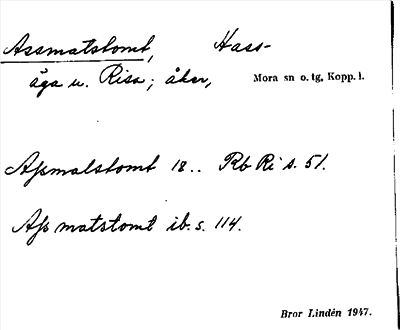 Assmatstomt, Hass-
åga u. Risa; åker, Mora sn o. tg, Kopp. l.
Assmalstomt 18.. Rb Ri s. 51.
Ass matstomt ib. s. 114.
Bror Lindén 1947.